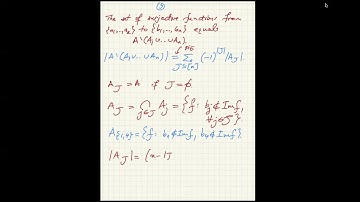 ③
The set of surjective functions from
{a₁,...,aₖ} to {b₁,...,bₙ} equals
A\(A₁∪...∪Aₙ).
PIE
|A\(A₁∪...∪Aₙ)| = Σ (-1)^|J| |A_J|.
J⊆[n]
A_J = A if J = ∅
A_J = ⋂ A_j = {f: b_j ∉ Im f,
j∈J ∀j∈J}
A_{1,4} = {f: b₁ ∉ Im f, b₄ ∉ Im f}
|A_J| = (n-|J